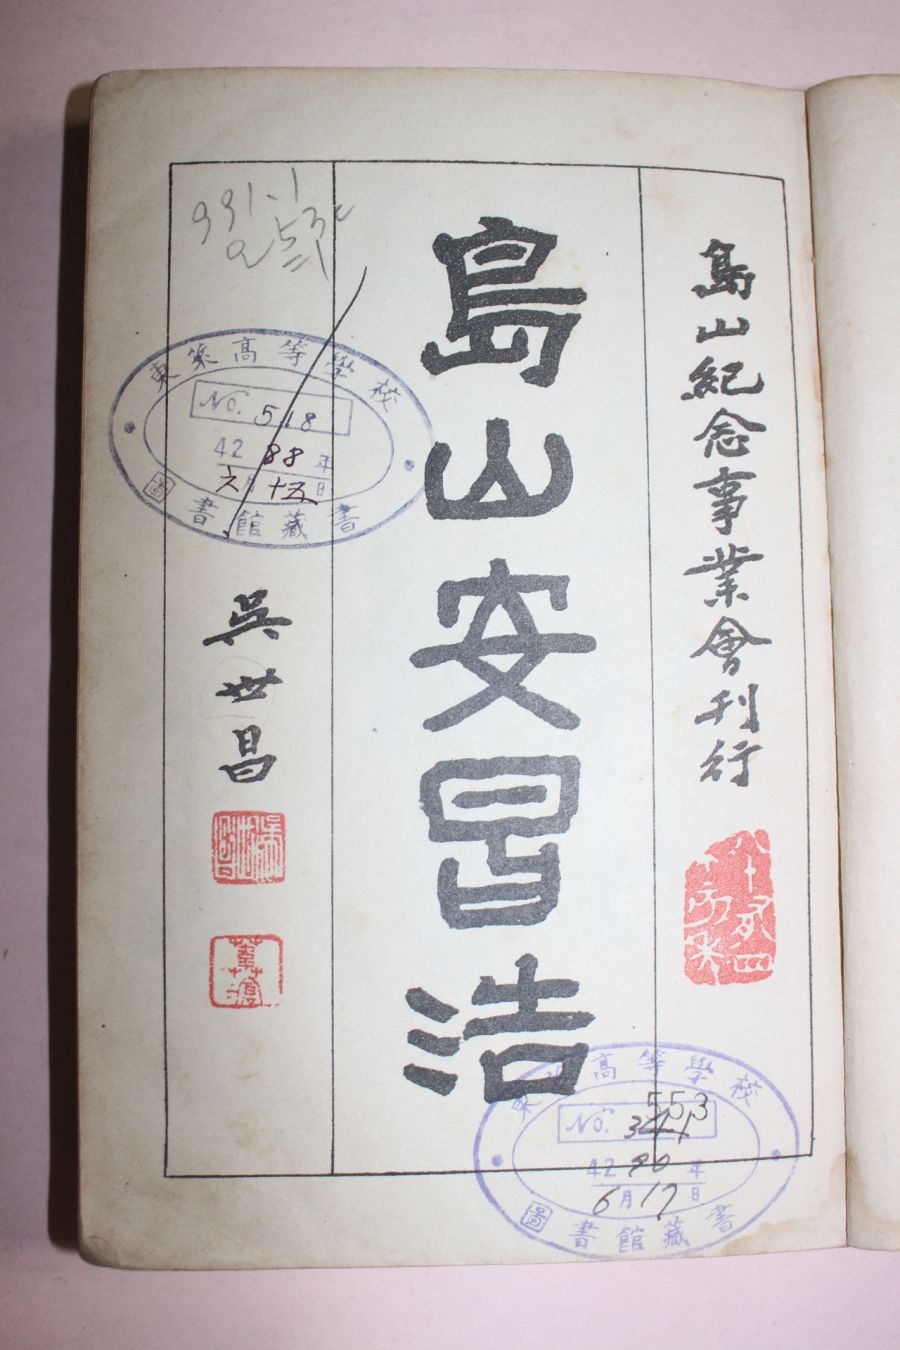 島山紀念事業會刊行
島山安昌浩
吳世昌
991.1
東萊高等學校
No. 518
4288年
六月十五日
圖書館藏書
東萊高等學校
No. 553
4290年
6月17日
圖書館藏書